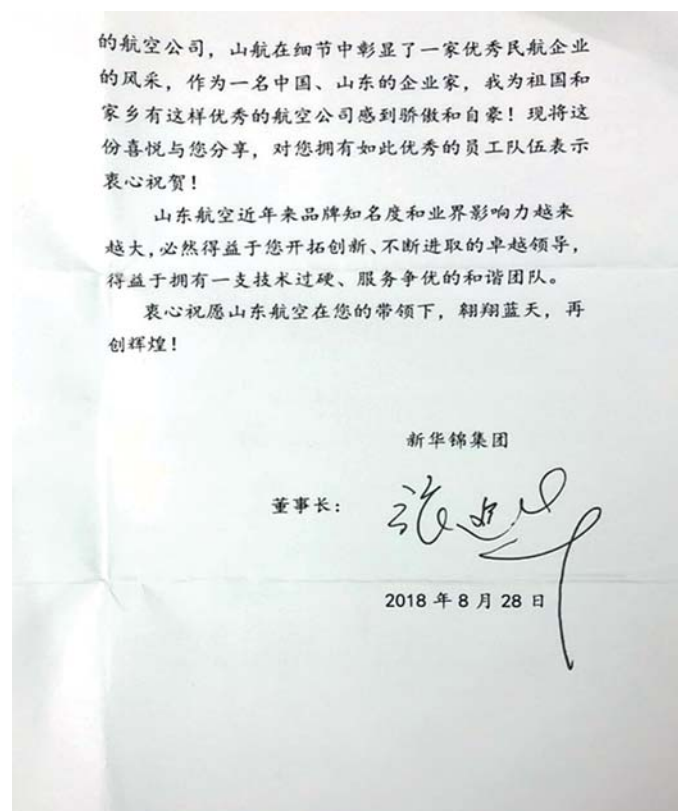 的航空公司，山航在细节中彰显了一家优秀民航企业
的风采，作为一名中国、山东的企业家，我为祖国和
家乡有这样优秀的航空公司感到骄傲和自豪！现将这
份喜悦与您分享，对您拥有如此优秀的员工队伍表示
衷心祝贺！
山东航空近年来品牌知名度和业界影响力越来
越大，必然得益于您开拓创新、不断进取的卓越领导，
得益于拥有一支技术过硬、服务争优的和谐团队。
衷心祝愿山东航空在您的带领下，翱翔蓝天，再
创辉煌！
新华锦集团
董事长：
2018 年 8 月 28 日